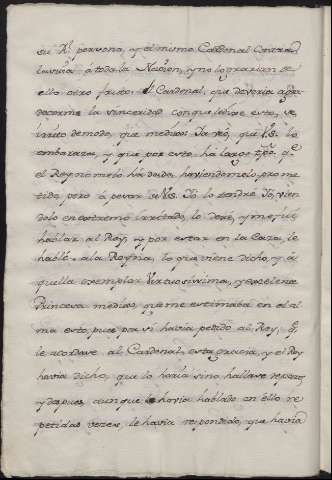 su Rl. persona, y el mismo Cardenal contra
la suia á toda la Nacion, y no lograrian de
ello otro fruto. El Cardenal, que deveria agra
decerme la sinceridad con que le dixe esto, se
irrito de modo, que me dixo: Ya veo, que V.S. lo
embaraza, y que por esto ha largo tpo. qe.
el Rey no me lo há dado, haviendomelo prome
tido, pero á pesar de V.S. Yo lo tendré. Yo, vien
dolo en extremo irritado, lo dexé, y me fui á
hablar al Rey, y por estar en la Caza, le
hablé a la Reyna, lo que viene dicho, y a
quella exemplar Virtuosissima, y excelente
Princesa me dixo, que me estimaba en el al
ma esto, pues para si havia pedido al Rey, qe.
le acordase al Cardenal, esta gracia, y el Rey
havia dicho, que lo haria sino hallase reparo,
y despues aunque le havia hablado en ello re
petidas vezes, le havia respondido, que havia